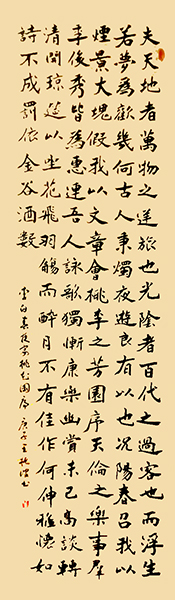 夫天地者萬物之逆旅也光陰者百代之過客也而浮生
若夢為歡幾何古人秉燭夜遊良有以也況陽春召我以
煙景大塊假我以文章會桃李之芳園序天倫之樂事羣
季俊秀皆為惠連吾人詠歌獨慚康樂幽賞未已高談轉
清開瓊筵以坐花飛羽觴而醉月不有佳作何伸雅懷如
詩不成罰依金谷酒數
李白春夜宴桃李園序 庚子